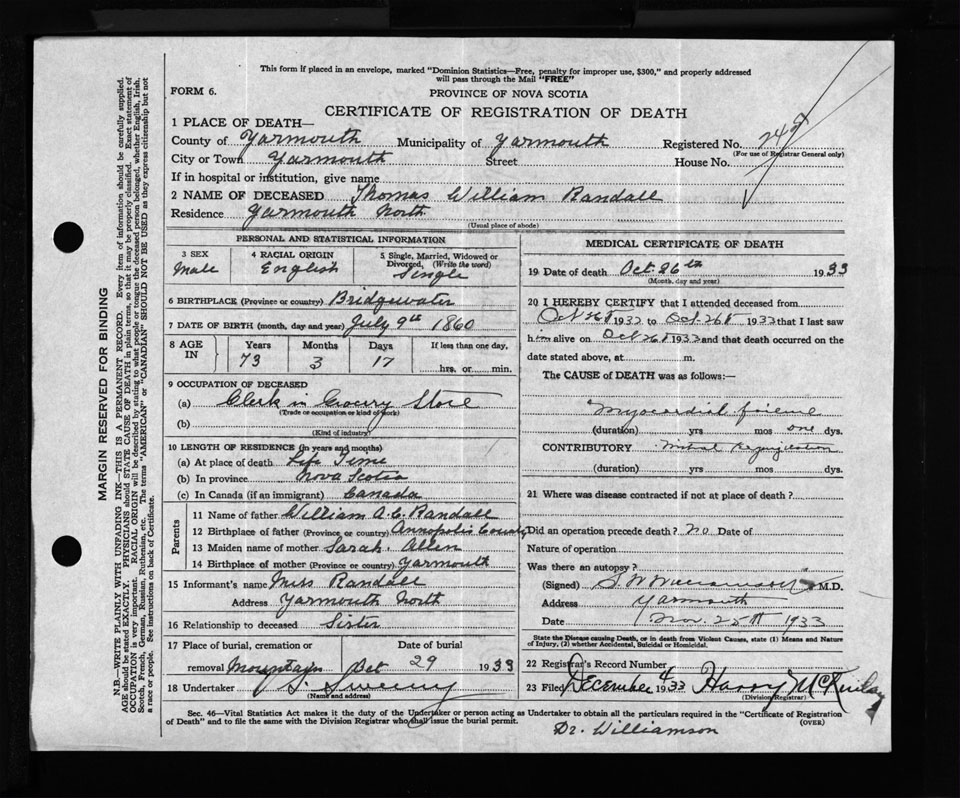 This form if placed in an envelope, marked "Dominion Statistics—Free, penalty for improper use, $300," and properly addressed
will pass through the Mail "FREE"
FORM 6.
PROVINCE OF NOVA SCOTIA
CERTIFICATE OF REGISTRATION OF DEATH
1 PLACE OF DEATH—
County of Yarmouth Municipality of Yarmouth Registered No.
(For use of Registrar General only)
City or Town Yarmouth Street House No.
If in hospital or institution, give name
2 NAME OF DECEASED Thomas William Randall
Residence Yarmouth North
(Usual place of abode)
PERSONAL AND STATISTICAL INFORMATION
3 SEX 4 RACIAL ORIGIN 5 Single, Married, Widowed or
Divorced, (Write the word)
Male English Single
6 BIRTHPLACE (Province or country) Bridgewater
7 DATE OF BIRTH (month, day and year) July 9th 1860
8 AGE IN Years Months Days If less than one day,
73 3 17 hrs. or min.
9 OCCUPATION OF DECEASED
(a) Clerk in Grocery Store
(Trade or occupation or kind of work)
(b)
(Kind of industry)
10 LENGTH OF RESIDENCE (in years and months)
(a) At place of death Life Time
(b) In province Nova Scotia
(c) In Canada (if an immigrant) Canada
Parents
11 Name of father William A. C. Randall
12 Birthplace of father (Province or country) Annopolis County
13 Maiden name of mother Sarah. Allen
14 Birthplace of mother (Province or country) Yarmouth
15 Informant's name Miss Randall
Address Yarmouth North
16 Relationship to deceased Sister
17 Place of burial, cremation or Date of burial
removal Mountain Oct 29 1933
18 Undertaker Sweeny
(Name and address)
MEDICAL CERTIFICATE OF DEATH
19 Date of death Oct. 26th 1933
(Month, day and year)
20 I HEREBY CERTIFY that I attended deceased from
Oct 26th 1933 to Oct. 26th 1933 that I last saw
him alive on Oct 26th 1933 and that death occurred on the
date stated above, at m.
The CAUSE of DEATH was as follows:—
Myocardial
(duration) yrs mos one dys.
CONTRIBUTORY Mitral Regurgitation
(duration) yrs mos dys.
21 Where was disease contracted if not at place of death?
Did an operation precede death? no Date of
Nature of operation
Was there an autopsy?
(Signed) S. W Williamson M.D.
Address Yarmouth
Date Nov. 25th 1933
State the Disease causing Death, or in death from Violent Causes, state (1) Means and Nature
of Injury, (2) whether Accidental, Suicidal or Homicidal.
22 Registrar's Record Number
23 Filed December 4 1933 Harry McKinlay
(Division Registrar)
Sec. 46—Vital Statistics Act makes it the duty of the Undertaker or person acting as Undertaker to obtain all the particulars required in the "Certificate of Registration
of Death" and to file the same with the Division Registrar who shall issue the burial permit.
(OVER)
Dr. Williamson
MARGIN RESERVED FOR BINDING
N.B.—WRITE PLAINLY WITH UNFADING INK—THIS IS A PERMANENT RECORD. Every item of information should be carefully supplied.
AGE should be stated EXACTLY. PHYSICIANS should STATE CAUSE OF DEATH in plain terms, so that it may be properly classified. Exact statement of
OCCUPATION is very important. RACIAL ORIGIN will be described by stating to what people or tongue the deceased person belonged, whether English, Irish,
Scotch, French, German, Russian, Ruthenian, etc. The terms "AMERICAN" or "CANADIAN" SHOULD NOT BE USED as they express citizenship but not
a race or people. See instructions on back of Certificate.